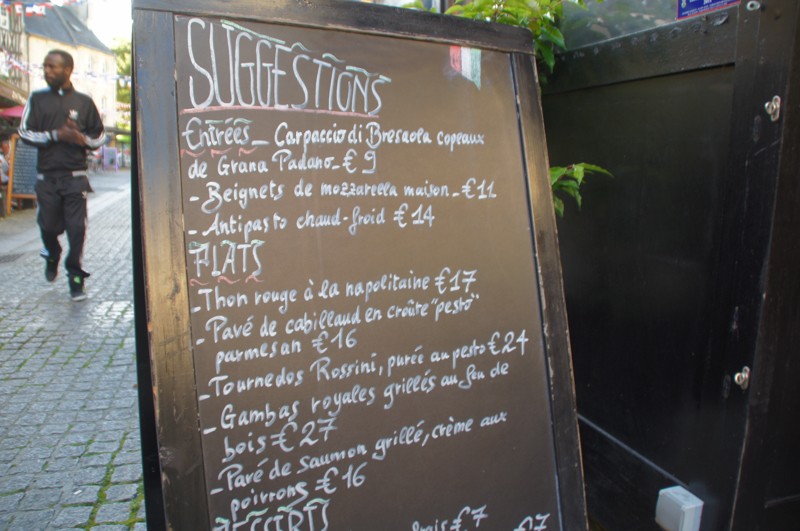 SUGGESTIONS
Entrées - Carpaccio di Bresaola copeaux
de Grana Padano - €9
- Beignets de mozzarella maison - €11
- Antipasto chaud-froid €14
PLATS
- Thon rouge à la napolitaine €17
- Pavé de cabillaud en croûte "pesto"
parmesan €16
- Tournedos Rossini, purée au pesto €24
- Gambas royales grillés au feu de
bois €27
- Pavé de saumon grillé, crème aux
poivrons €16
DESSERTS
€7
€7